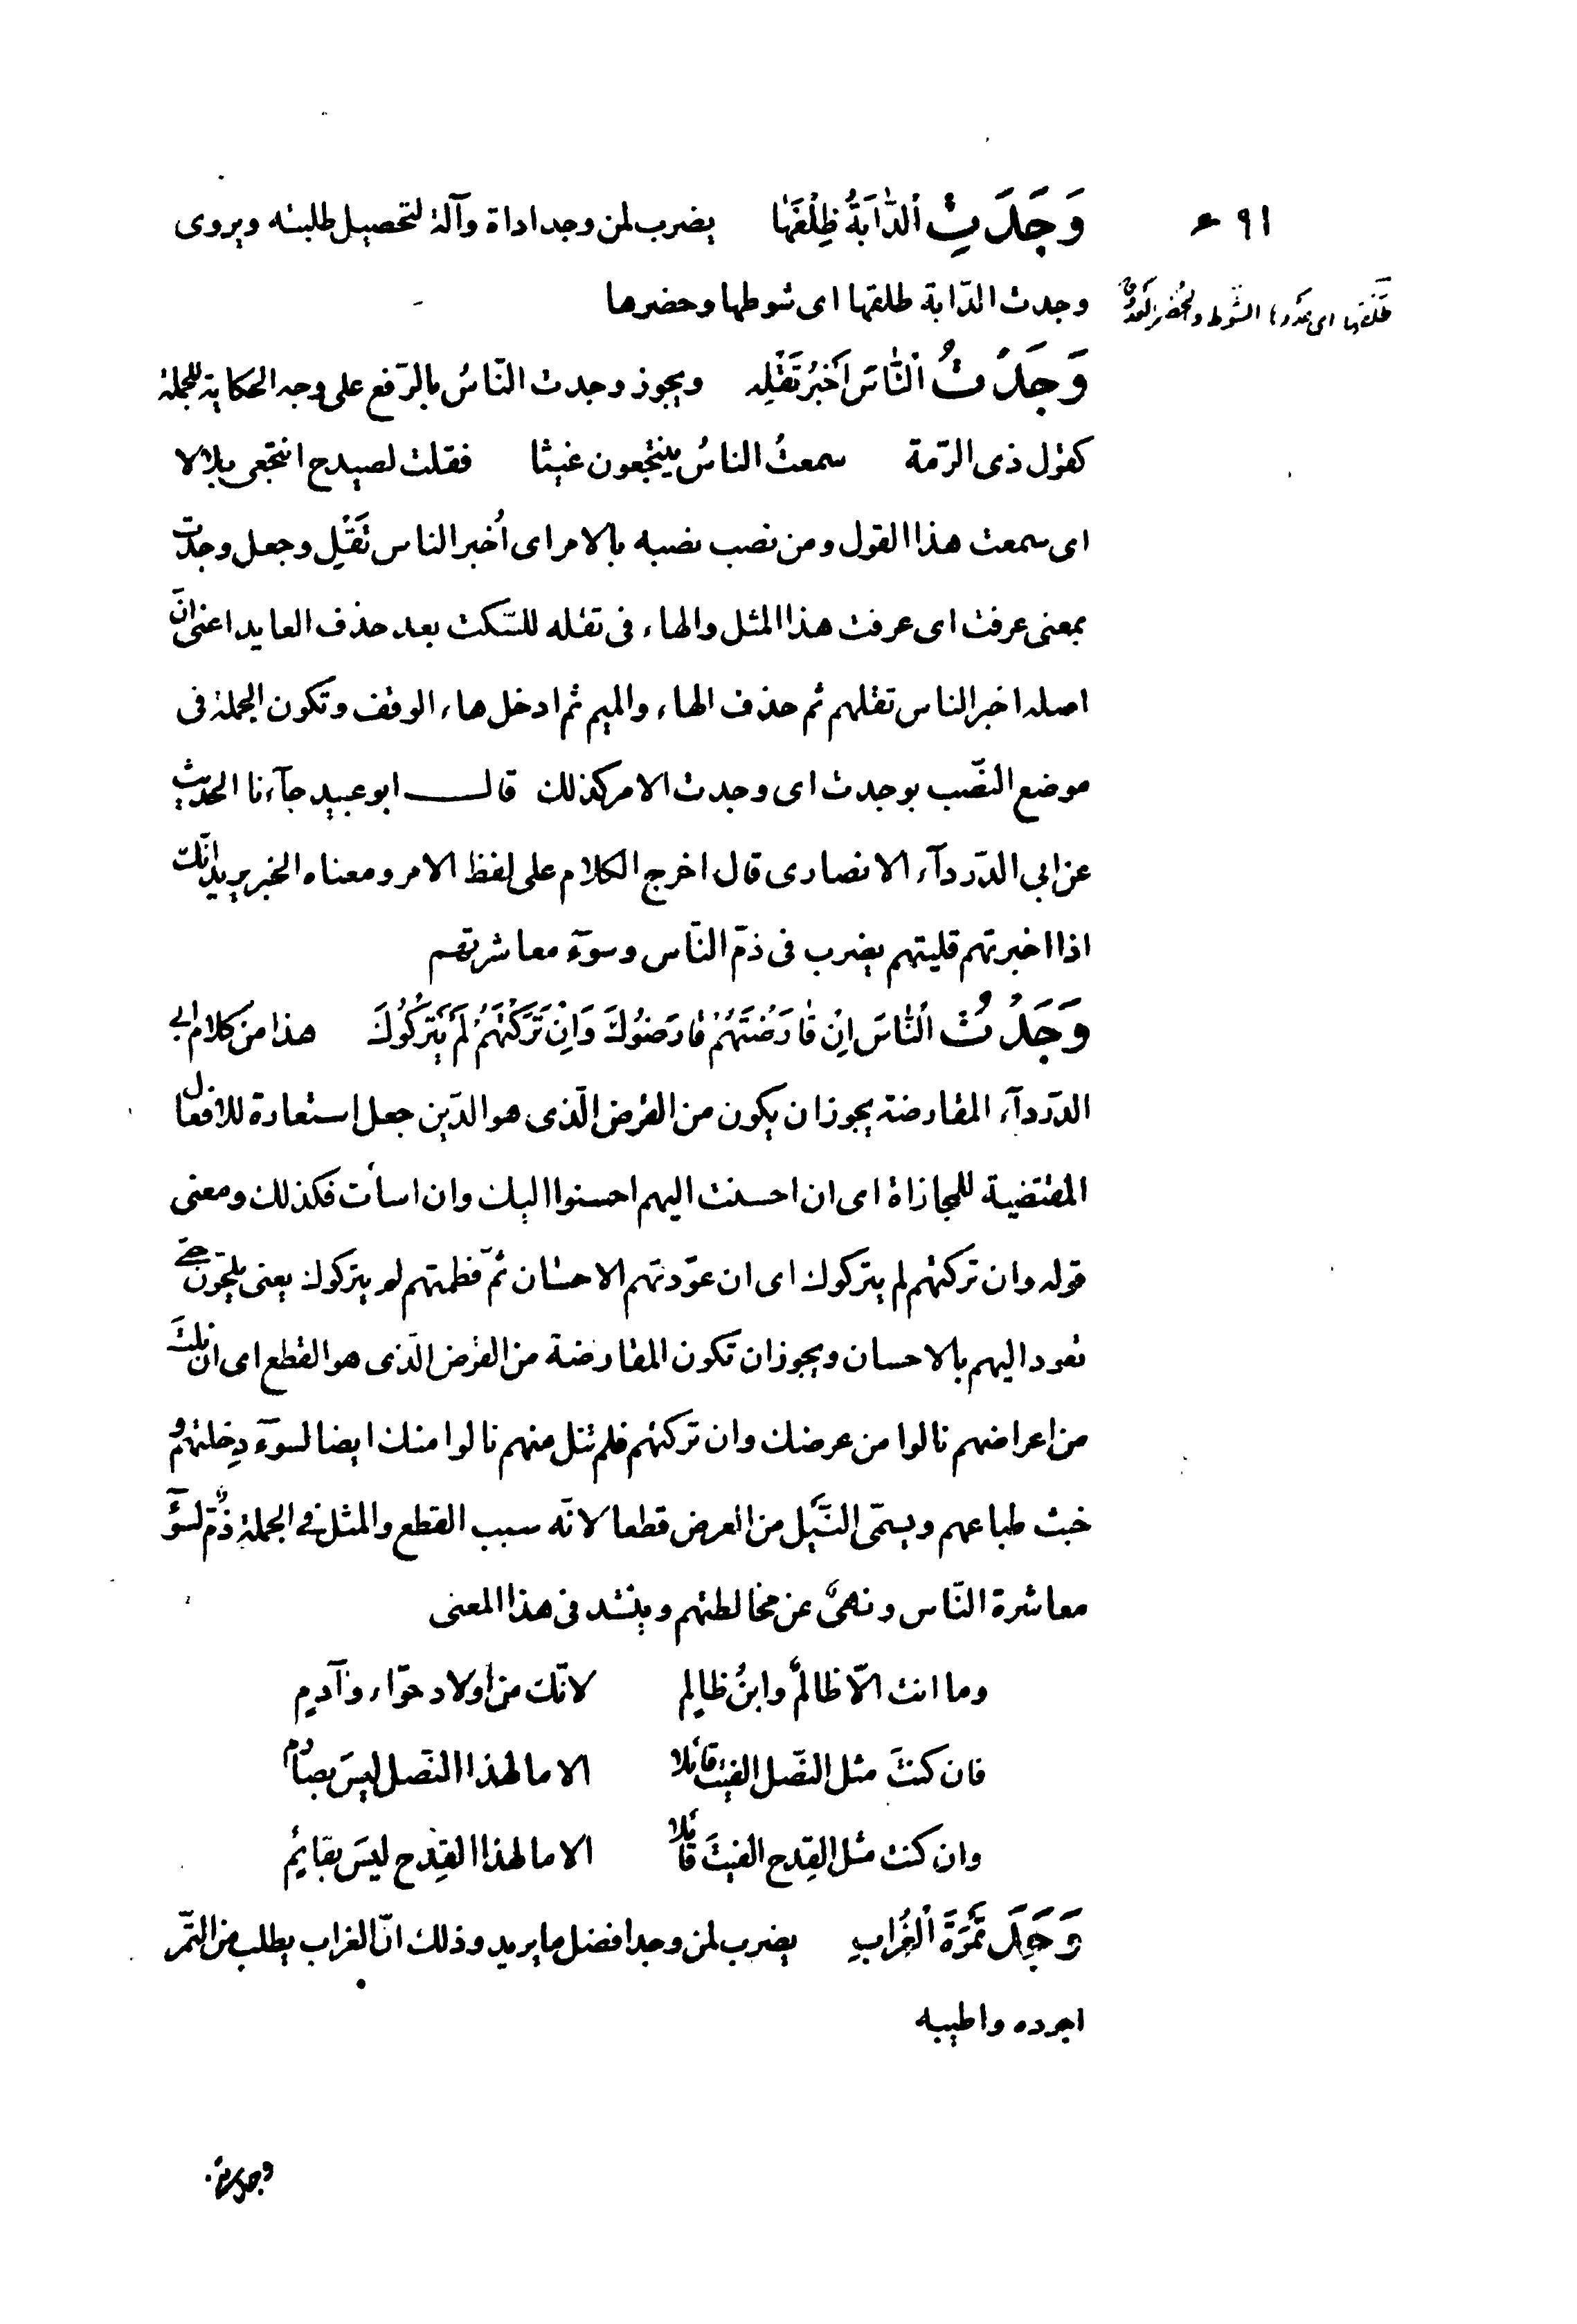 ٩١ ع
وَجَدَتِ اْلدَّابَةُ ظِلْفَهَا يضرب لمن وجد اداة وآلة لتحصيل طلبته ويروى
وجدت الدّابة طلقها اى شوطها وحضرها
طَلَقها اى الشوط والحُضر
وَجَدْتُ اْلنَّاسَ اُخْبُرْ تَقْلِه ويجوز وجدت النّاسُ بالرّفع على وجه الحكاية للجملة
كقول ذى الرّمة سمعتُ الناسُ ينتجعون غيثا فقلت لصيدح انتجعى بلالا
اى سمعت هذا القول ومن نصب نصبه بالامر اى اُخبر الناس تَقْلِ وجعل وجدت
بمعنى عرفت اى عرفت هذا المثل والهاء فى تقله للسّكت بعد حذف العايد اعنى انّ
اصله اخبر الناس تقلهم ثم حذف الهاء والميم ثم ادخل هاء الوقف وتكون الجملة فى
موضع النصّب بوجدت اى وجدت الامر كذلك قال ابو عبيد جآءنا الحديث
عن ابى الدّردآء الانصارى قال اخرج الكلام على لفظ الامر ومعناه الخبر يريد انّك
اذا اخبرتهم قليتهم يضرب فى ذمّ النّاس وسوٓء معاشرتهم
وَجَدْتُ اْلنَّاسَ اِنْ قَارَضْتَهُمْ قَارَضُوْكَ وَاِنْ تَرَكْتَهُمْ لَمْ يَتْرُكُوْكَ هذا من كلام ابى
الدّردآء المقارضة يجوز ان يكون من القرض الّذى هو الدّين جعل استعارة للافعال
المقتضية للمجازاة اى ان احسنت اليهم احسنوا اليك وان اسأت فكذلك ومعنى
قوله وان تركتهم لم يتركوك اى ان عوّدتهم الاحسان ثمّ فطمتهم لم يتركوك يعنى يلحّون حتّى
تعود اليهم بالاحسان ويجوز ان تكون المقارضة من القرض الّذى هو القطع اى ان نلتَ
من اعراضهم نالوا من عرضك وان تركتهم فلم تنل منهم نالوا منك ايضا لسوٓء دِخلتهم و
خبث طباعهم ويسمّى النَّيل من العرض قطعا لانّه سبب القطع والمثل فى الجملة ذمّ لسوٓء
معاشرة النّاس ونهىٌ عن مخالطتهم وينشد فى هذا المعنى
وما انت الّا ظالمٌ وابنُ ظالمِ لانّك من اولاد حوّاء وآدمِ
فان كنتَ مثل النصّل الفيتَ قائلا الا ما لهذا النصّل ليسَ بصارم
وان كنت مثل القِدح الفيتَ قائلا الا ما لهذا القِدح ليسَ بقايمِ
وَجَدَ تَمْرَةَ اْلغُرَابِ يضرب لمن وجد افضل ما يريد وذلك انّ الغراب يطلب من التّمر
اجوده واطيبه
وجدت